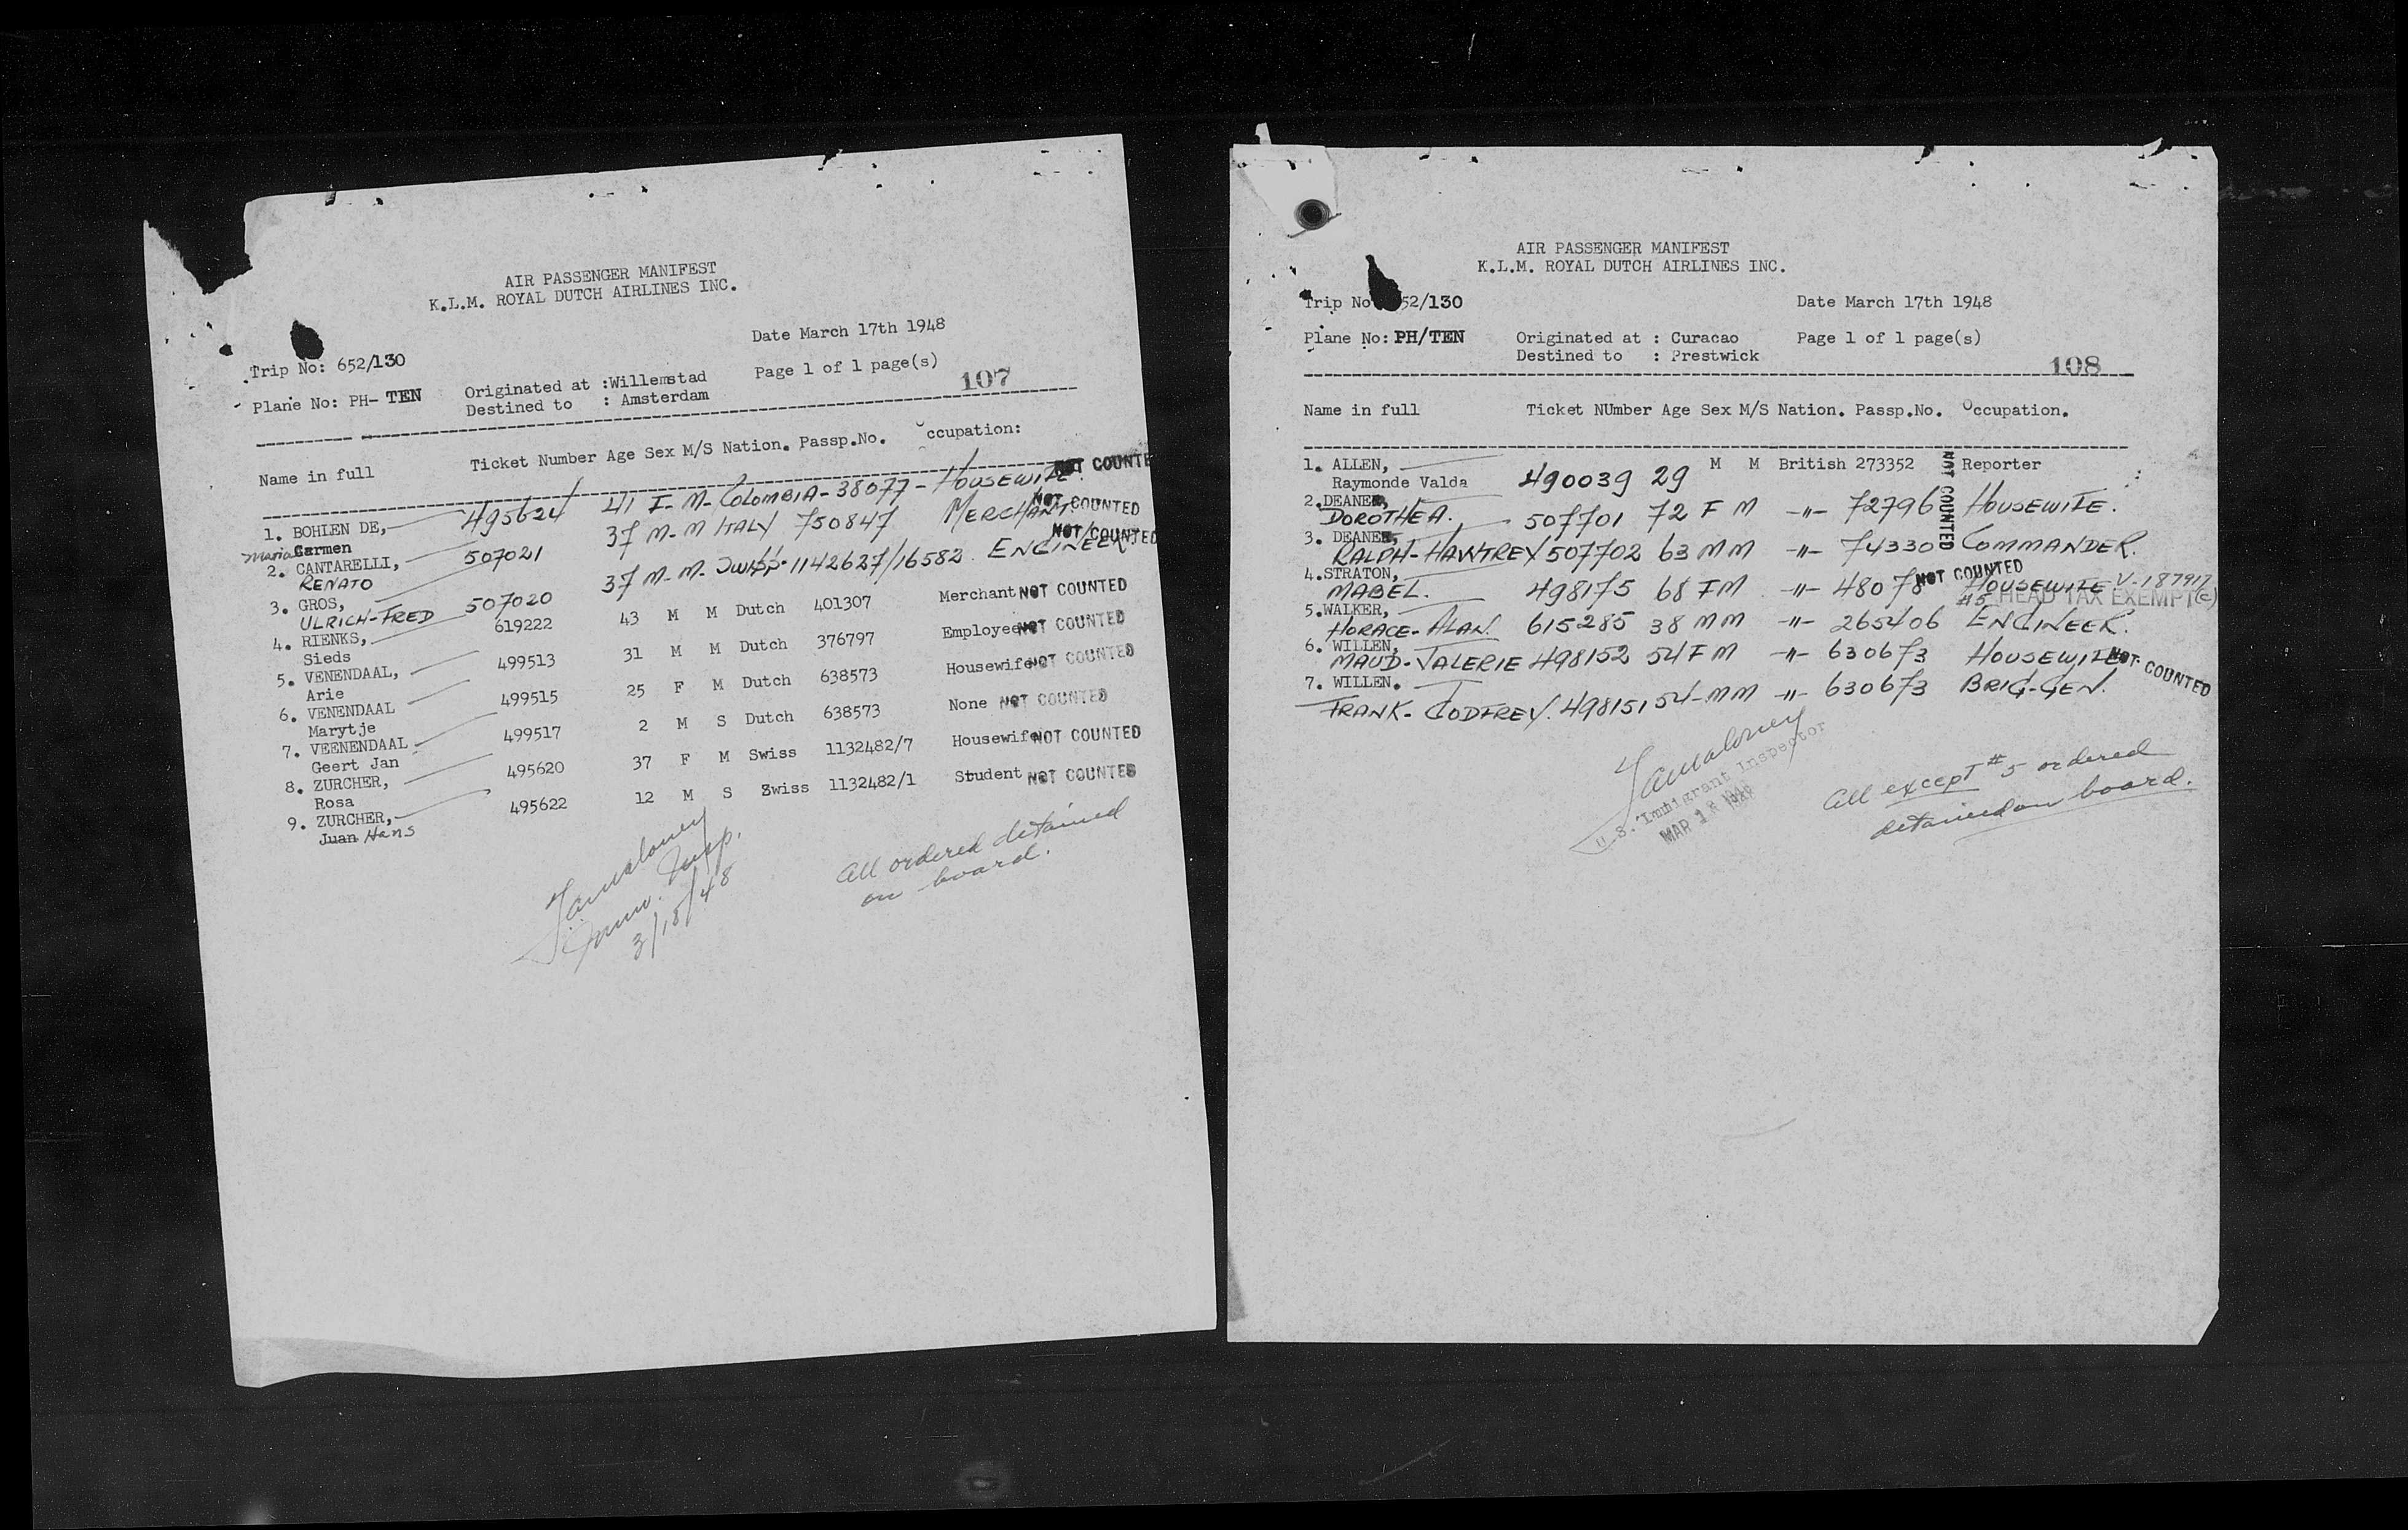 AIR PASSENGER MANIFEST
K.L.M. ROYAL DUTCH AIRLINES INC.
Date March 17th 1948
Trip No: 652/130
Page 1 of 1 page(s)
107
Plane No: PH- TEN
Originated at :Willemstad
Destined to : Amsterdam
Name in full Ticket Number Age Sex M/S Nation. Passp.No. Occupation:
1. BOHLEN DE, 495624 41 F- M- COLOMBIA - 38077 - HOUSEWIFE. NOT COUNTE
Maria Carmen
2. CANTARELLI, 507021 37 M- M ITALY 750847 MERCHANT. NOT COUNTED
RENATO
3. GROS, 507020 37 M- M- SWISS- 1142627/16582. ENGINEER NOT COUNTED
ULRICH-FRED
4. RIENKS, 619222 43 M M Dutch 401307 Merchant NOT COUNTED
Sieds
5. VENENDAAL, 499513 31 M M Dutch 376797 Employee NOT COUNTED
Arie
6. VENENDAAL 499515 25 F M Dutch 638573 Housewife NOT COUNTED
Marytje
7. VEENENDAAL 499517 2 M S Dutch 638573 None NOT COUNTED
Geert Jan
8. ZURCHER, 495620 37 F M Swiss 1132482/7 Housewife NOT COUNTED
Rosa
9. ZURCHER, 495622 12 M S Swiss 1132482/1 Student NOT COUNTED
Juan Hans
Imm. Insp.
3/18/48
All ordered detained
on board.
AIR PASSENGER MANIFEST
K.L.M. ROYAL DUTCH AIRLINES INC.
Trip No 52/130
Date March 17th 1948
Plane No: PH/TEN
Originated at : Curacao
Page 1 of 1 page(s)
Destined to : Prestwick
108
Name in full Ticket NUmber Age Sex M/S Nation. Passp.No. Occupation.
1. ALLEN, 490039 29 M M British 273352 Reporter
Raymonde Valda
2.DEANE,
DOROTHEA. 507701 72 F M -"- 72796 HOUSEWIFE.
NOT COUNTED
3. DEANE,
RALPH-HAWTREY 507702 63 M M -"- 74330 COMMANDER.
4.STRATON,
MABEL. 498175 68 F M -"- 48078 NOT COUNTED HOUSEWIFE V-187917
#5 HEAD TAX EXEMPT (c)
5.WALKER,
HORACE-ALAN. 615285 38 M M -"- 265406 ENGINEER.
6. WILLEN,
MAUD-VALERIE 498152 54 F M -"- 630673 HOUSEWIFE NOT COUNTED
7. WILLEN.
FRANK- GODFREY. 498151 54- M M -"- 630673 BRIG-GEN.
U.S. Immigrant Inspector
MAR 18 1948
All except #5 ordered
detained on board.